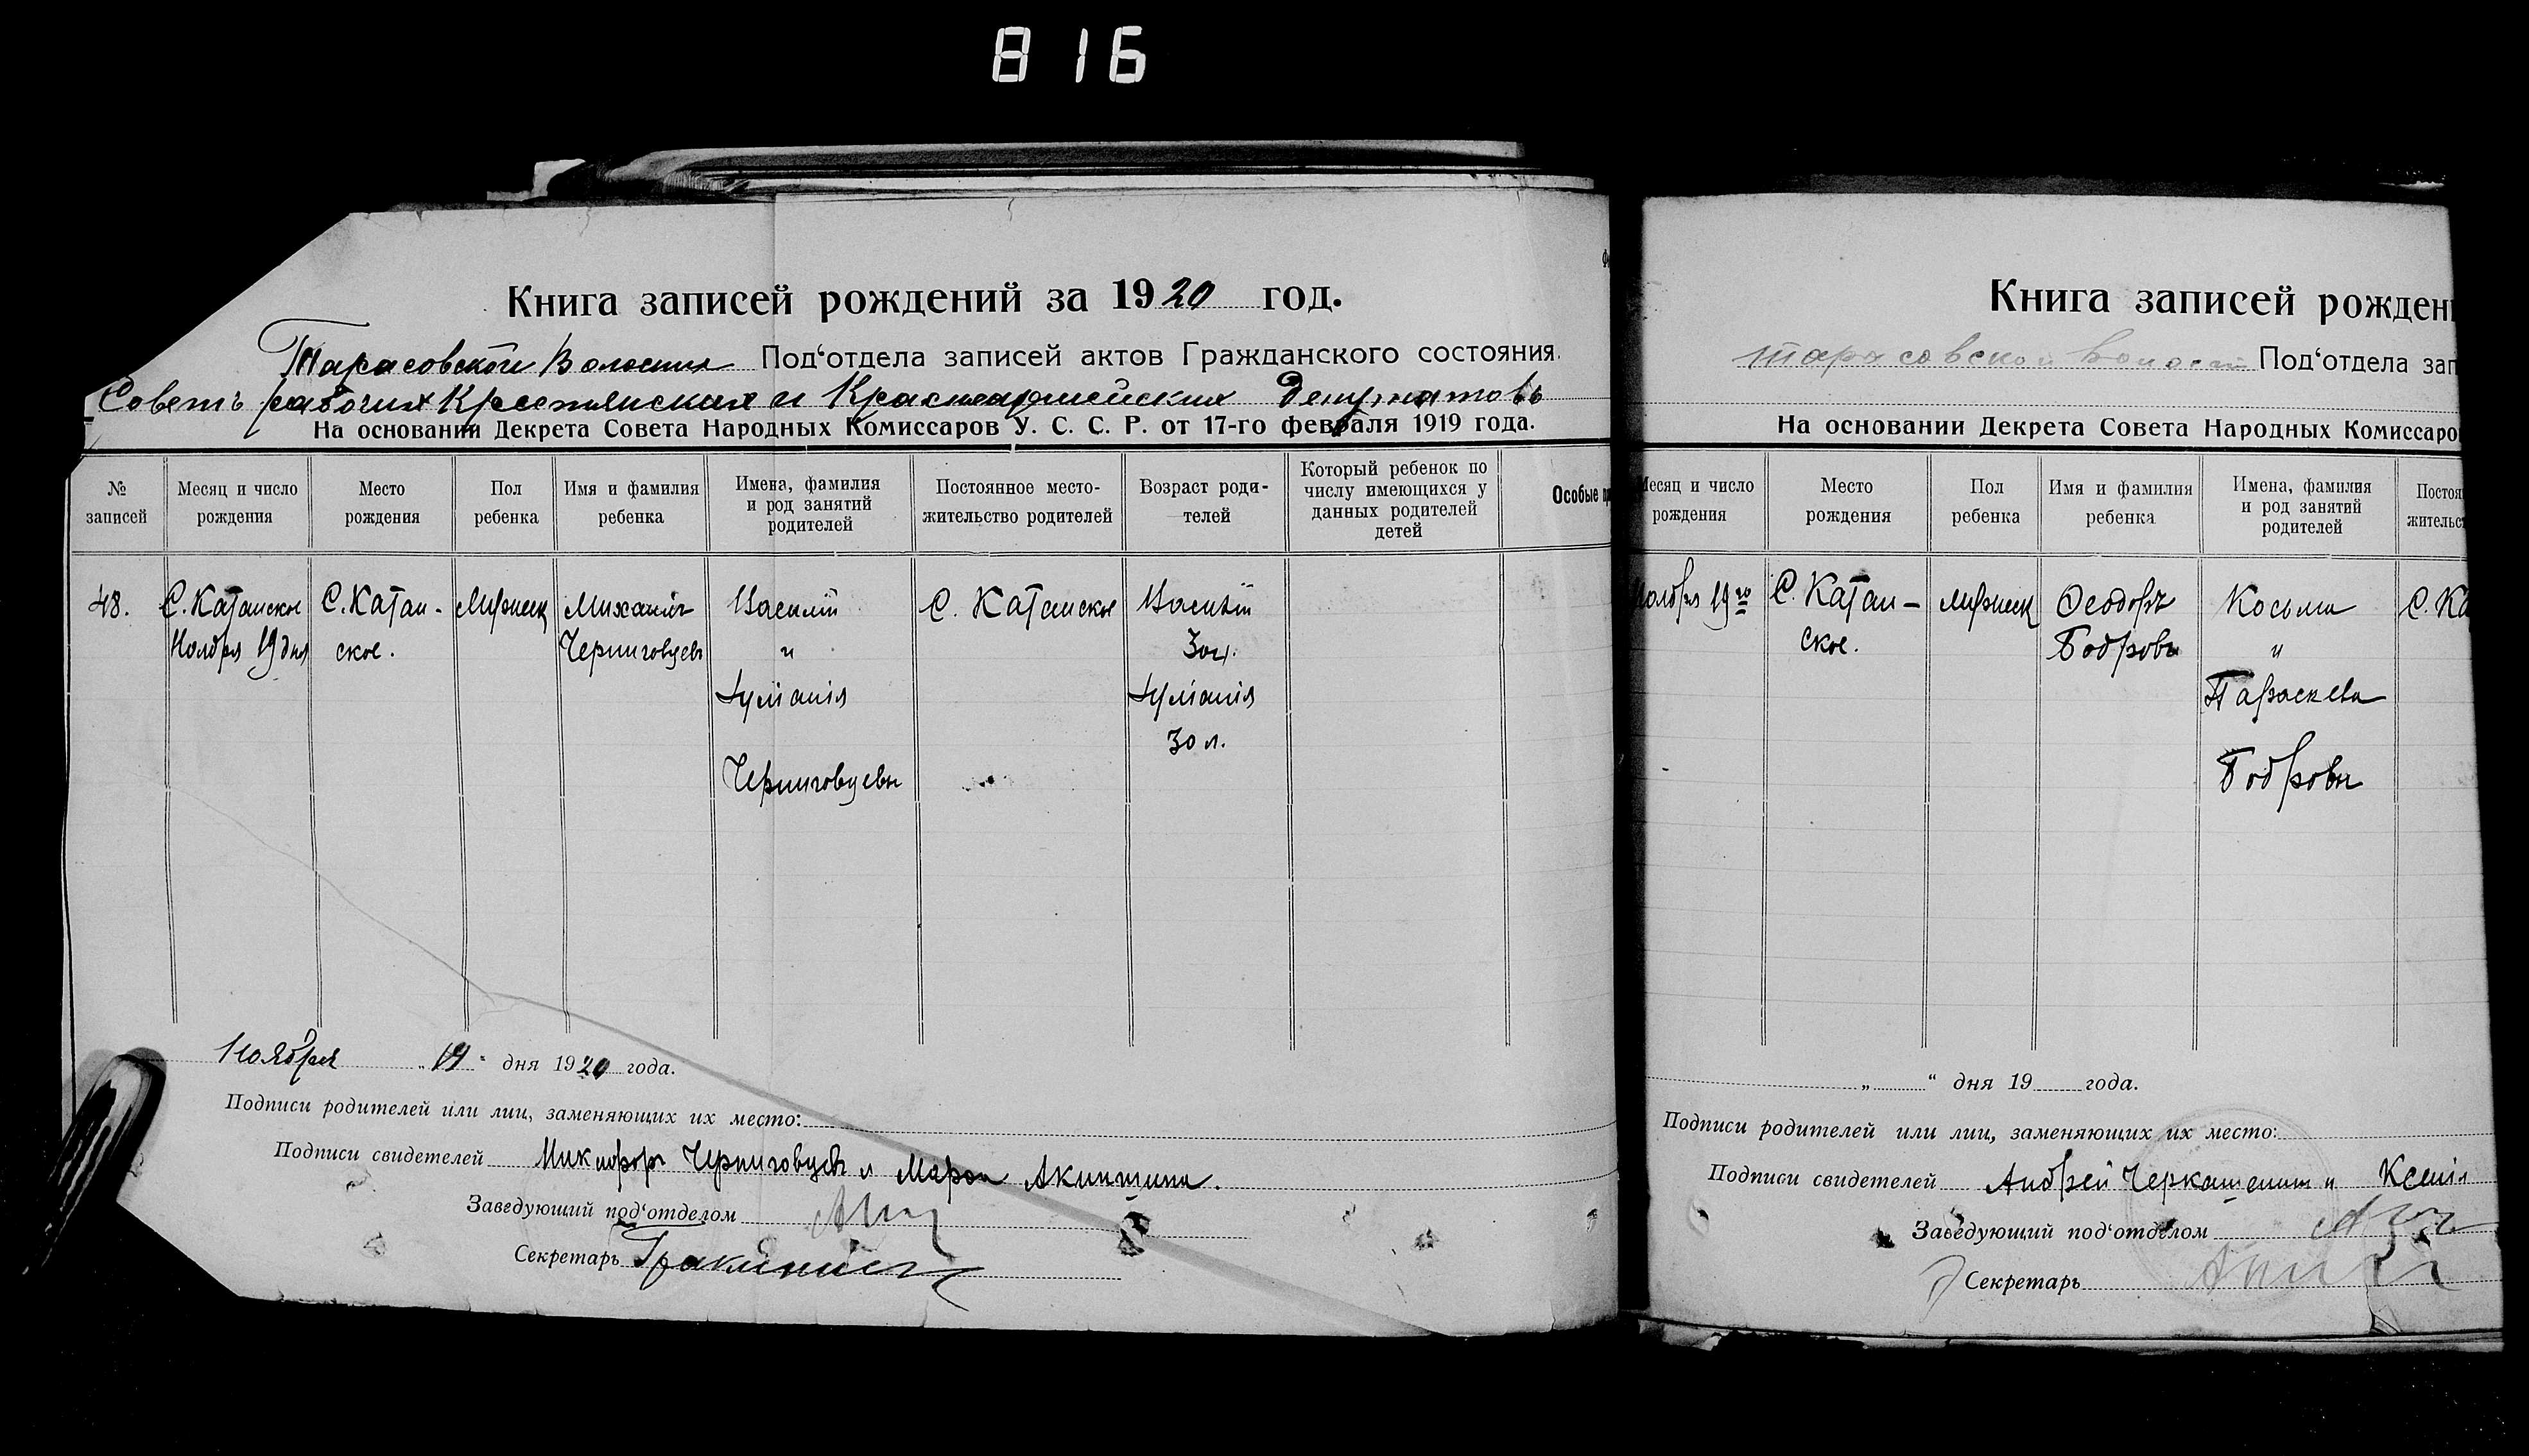 816
Книга записей рождений за 1920 год.
Тарасовской Волости Под‘отдела записей актов Гражданского состояния.
Советъ рабочих Крестьянских и Красноармейских Депутатовъ
На основании Декрета Совета Народных Комиссаров У. С. С. Р. от 17-го февраля 1919 года.
№ записей
Месяц и число рождения
Место рождения
Пол ребенка
Имя и фамилия ребенка
Имена, фамилия и род занятий родителей
Постоянное место-жительство родителей
Возраст роди-телей
Который ребенок по числу имеющихся у данных родителей детей
Особые
48.
С. Катанское
Ноября 19 дня
С. Катан-
ское.
Мирнец
Михаилъ
Черниговцевъ
Василий
и
Іуліанія
Черниговцевы
С. Катанское
Василій
30 л.
Іуліанія
30 л.
Ноября „19“ дня 1920 года.
Подписи родителей или лиц, заменяющих их место:
Подписи свидетелей Никифоръ Черниговцевъ и Марфа Акиншина.
Заведующий под‘отделом
Секретарь
Книга записей рождени
Тарасовской Волости Под‘отдела зап
На основании Декрета Совета Народных Комиссаро
Месяц и число рождения
Место рождения
Пол ребенка
Имя и фамилия ребенка
Имена, фамилия и род занятий родителей
Постоя
жительст
Ноября 19го
С. Катан-
ское.
Мирнец
Феодоръ
Бобровъ
Косьма
и
Параскева
Бобровы
С. Ка
„ “ дня 19 года.
Подписи родителей или лиц, заменяющих их место:
Подписи свидетелей Андрей Черкашенин и Ксенія
Заведующий под‘отделом
Секретарь